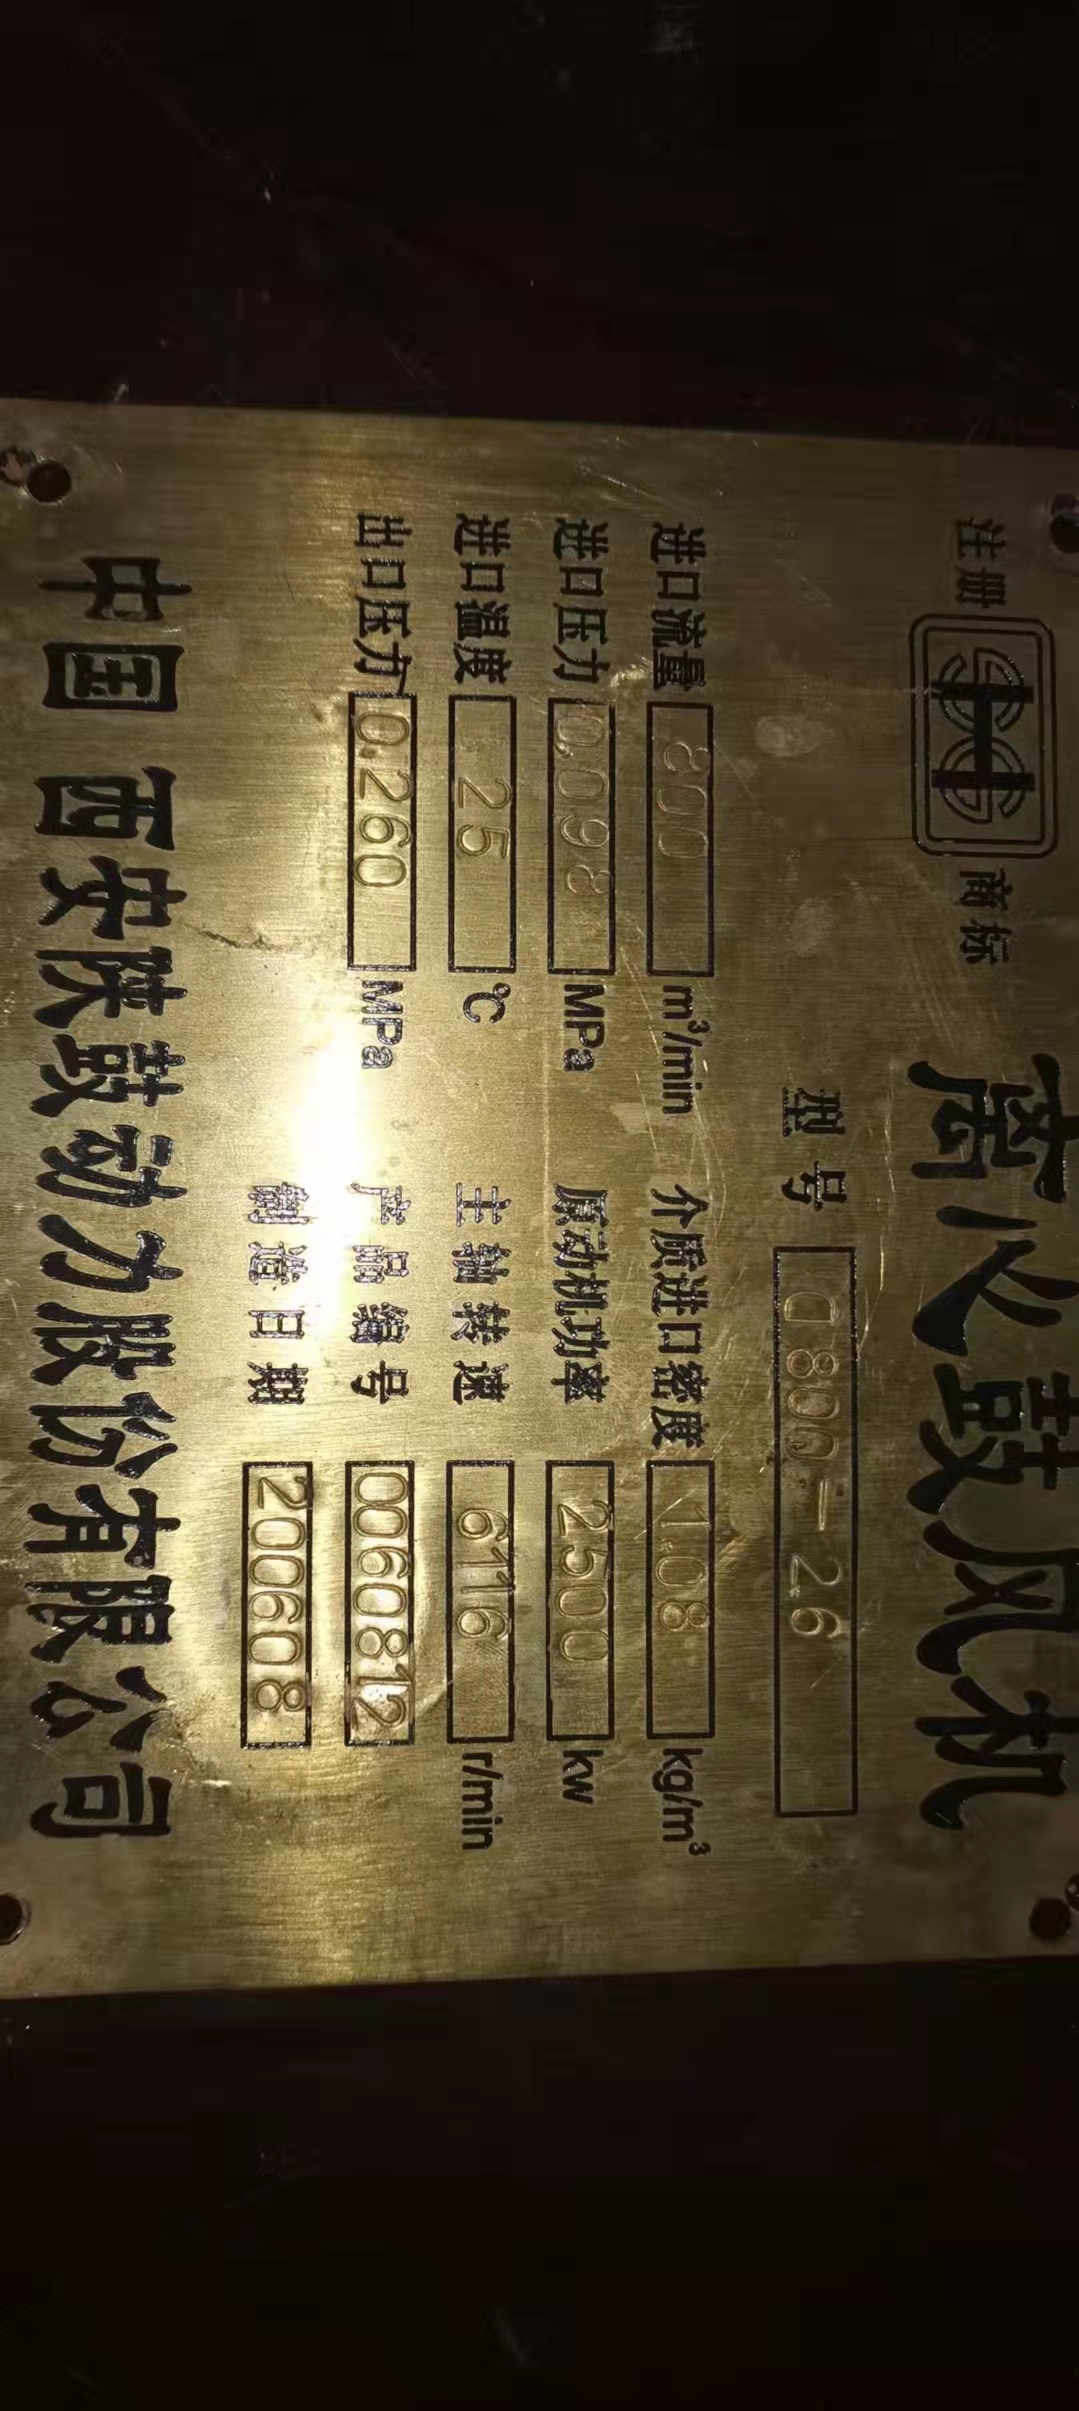 注册 商标
离心鼓风机
型号 D800-2.6
进口流量 800 m³/min 介质进口密度 1.08 kg/m³
进口压力 0.098 MPa 原动机功率 2500 kw
进口温度 25 ℃ 主轴转速 6116 r/min
出口压力 0.260 MPa 产品编号 0060812
制造日期 200608
中国 西安陕鼓动力股份有限公司